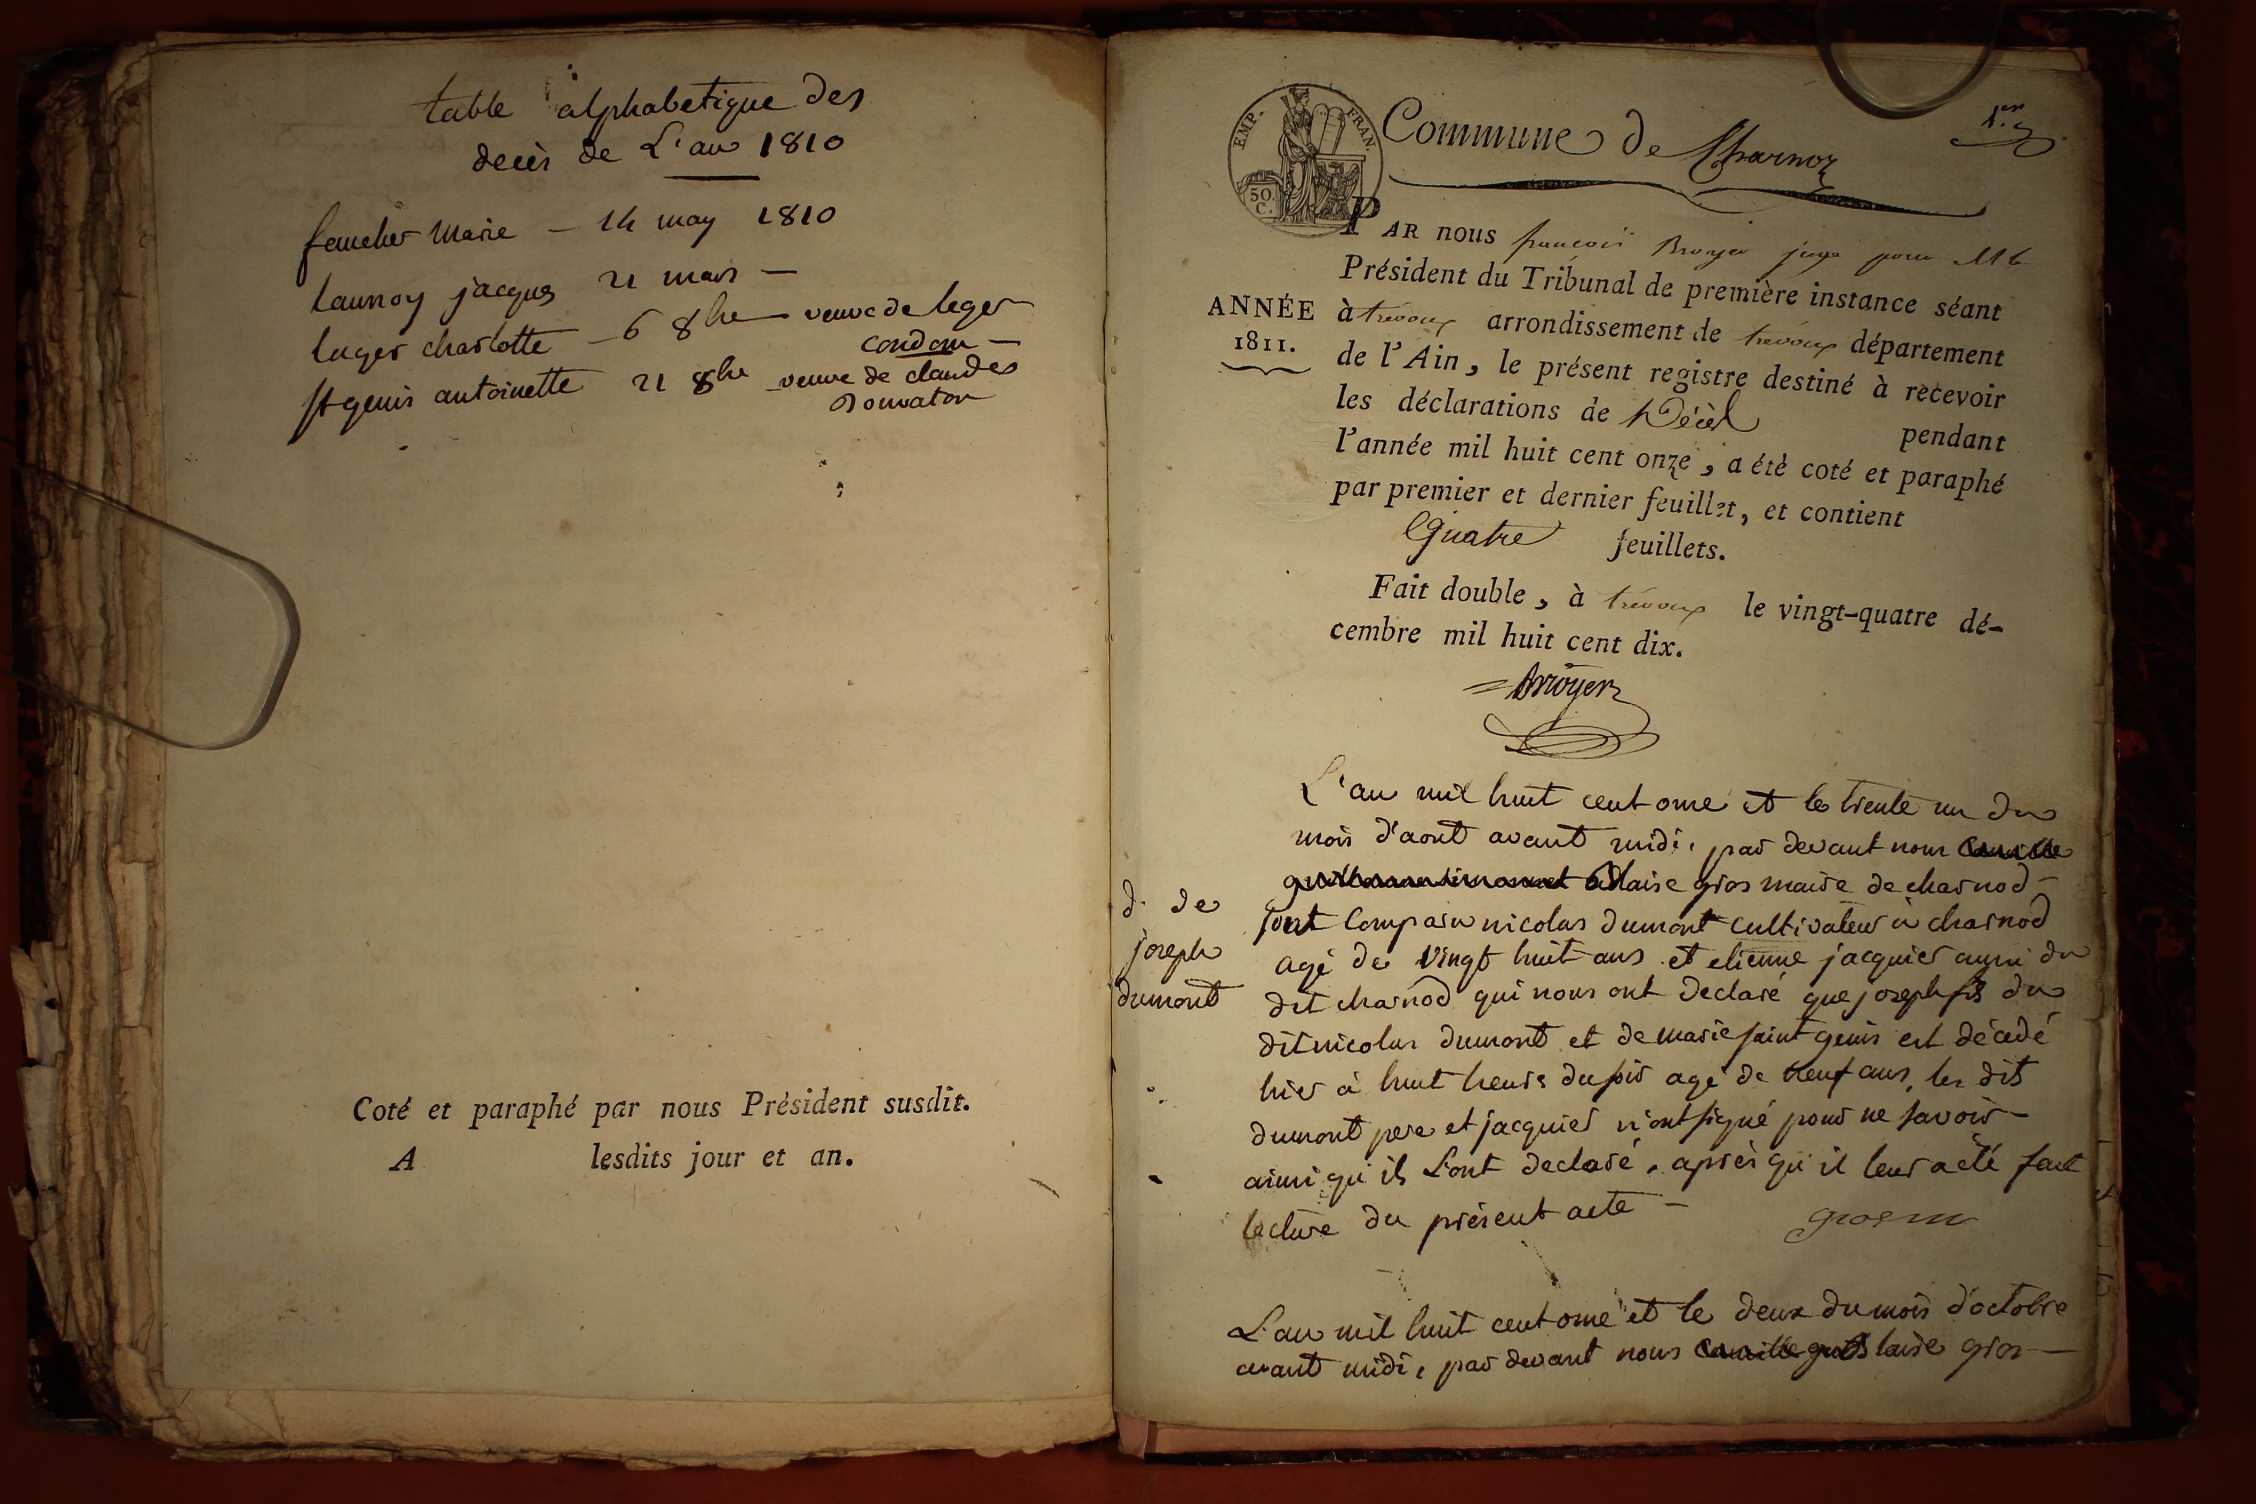 table alphabetique des
decès de L'an 1810
faucher Marie — 14 may 1810
launoy jacques 21 mars —
luger charlotte — 6 8bre — veuve de leger
condom —
st genis antoinette 21 8bre veuve de claude
donvaton
Coté et paraphé par nous Président susdit.
A lesdits jour et an.
1.er
EMP. FRAN.
50 C.
Commune de Charnoz
PAR nous françois Broyer juge pour Mr le
Président du Tribunal de première instance séant
ANNÉE
1811.
à trévoux arrondissement de trévoux département
de l'Ain, le présent registre destiné à recevoir
les déclarations de Décès pendant
l'année mil huit cent onze, a été coté et paraphé
par premier et dernier feuillet, et contient
Quatre feuillets.
Fait double, à trévoux le vingt-quatre dé-
cembre mil huit cent dix.
Broyer
L'an mil huit cent onze et le trente un du
mois d'aout avant midi, par devant nous camille
Blaise gros maire de charnod —
d. de
joseph
dumont
sont comparu nicolas dumont cultivateur à charnod
agé de vingt huit ans et etienne jacquier aussi du
dit charnod qui nous ont declaré que joseph fils du
dit nicolas dumont et de marie saint genis est décédé
hier à huit heure du soir agé de neuf ans, les dits
dumont pere et jacquier n'ont signé pour ne savoir —
ainsi qu'ils L'ont declaré, après qu'il leur a été fait
lecture du présent acte —
gros m
L'an mil huit cent onze et le deux du mois d'octobre
avant midi, par devant nous camille Blaise gros —